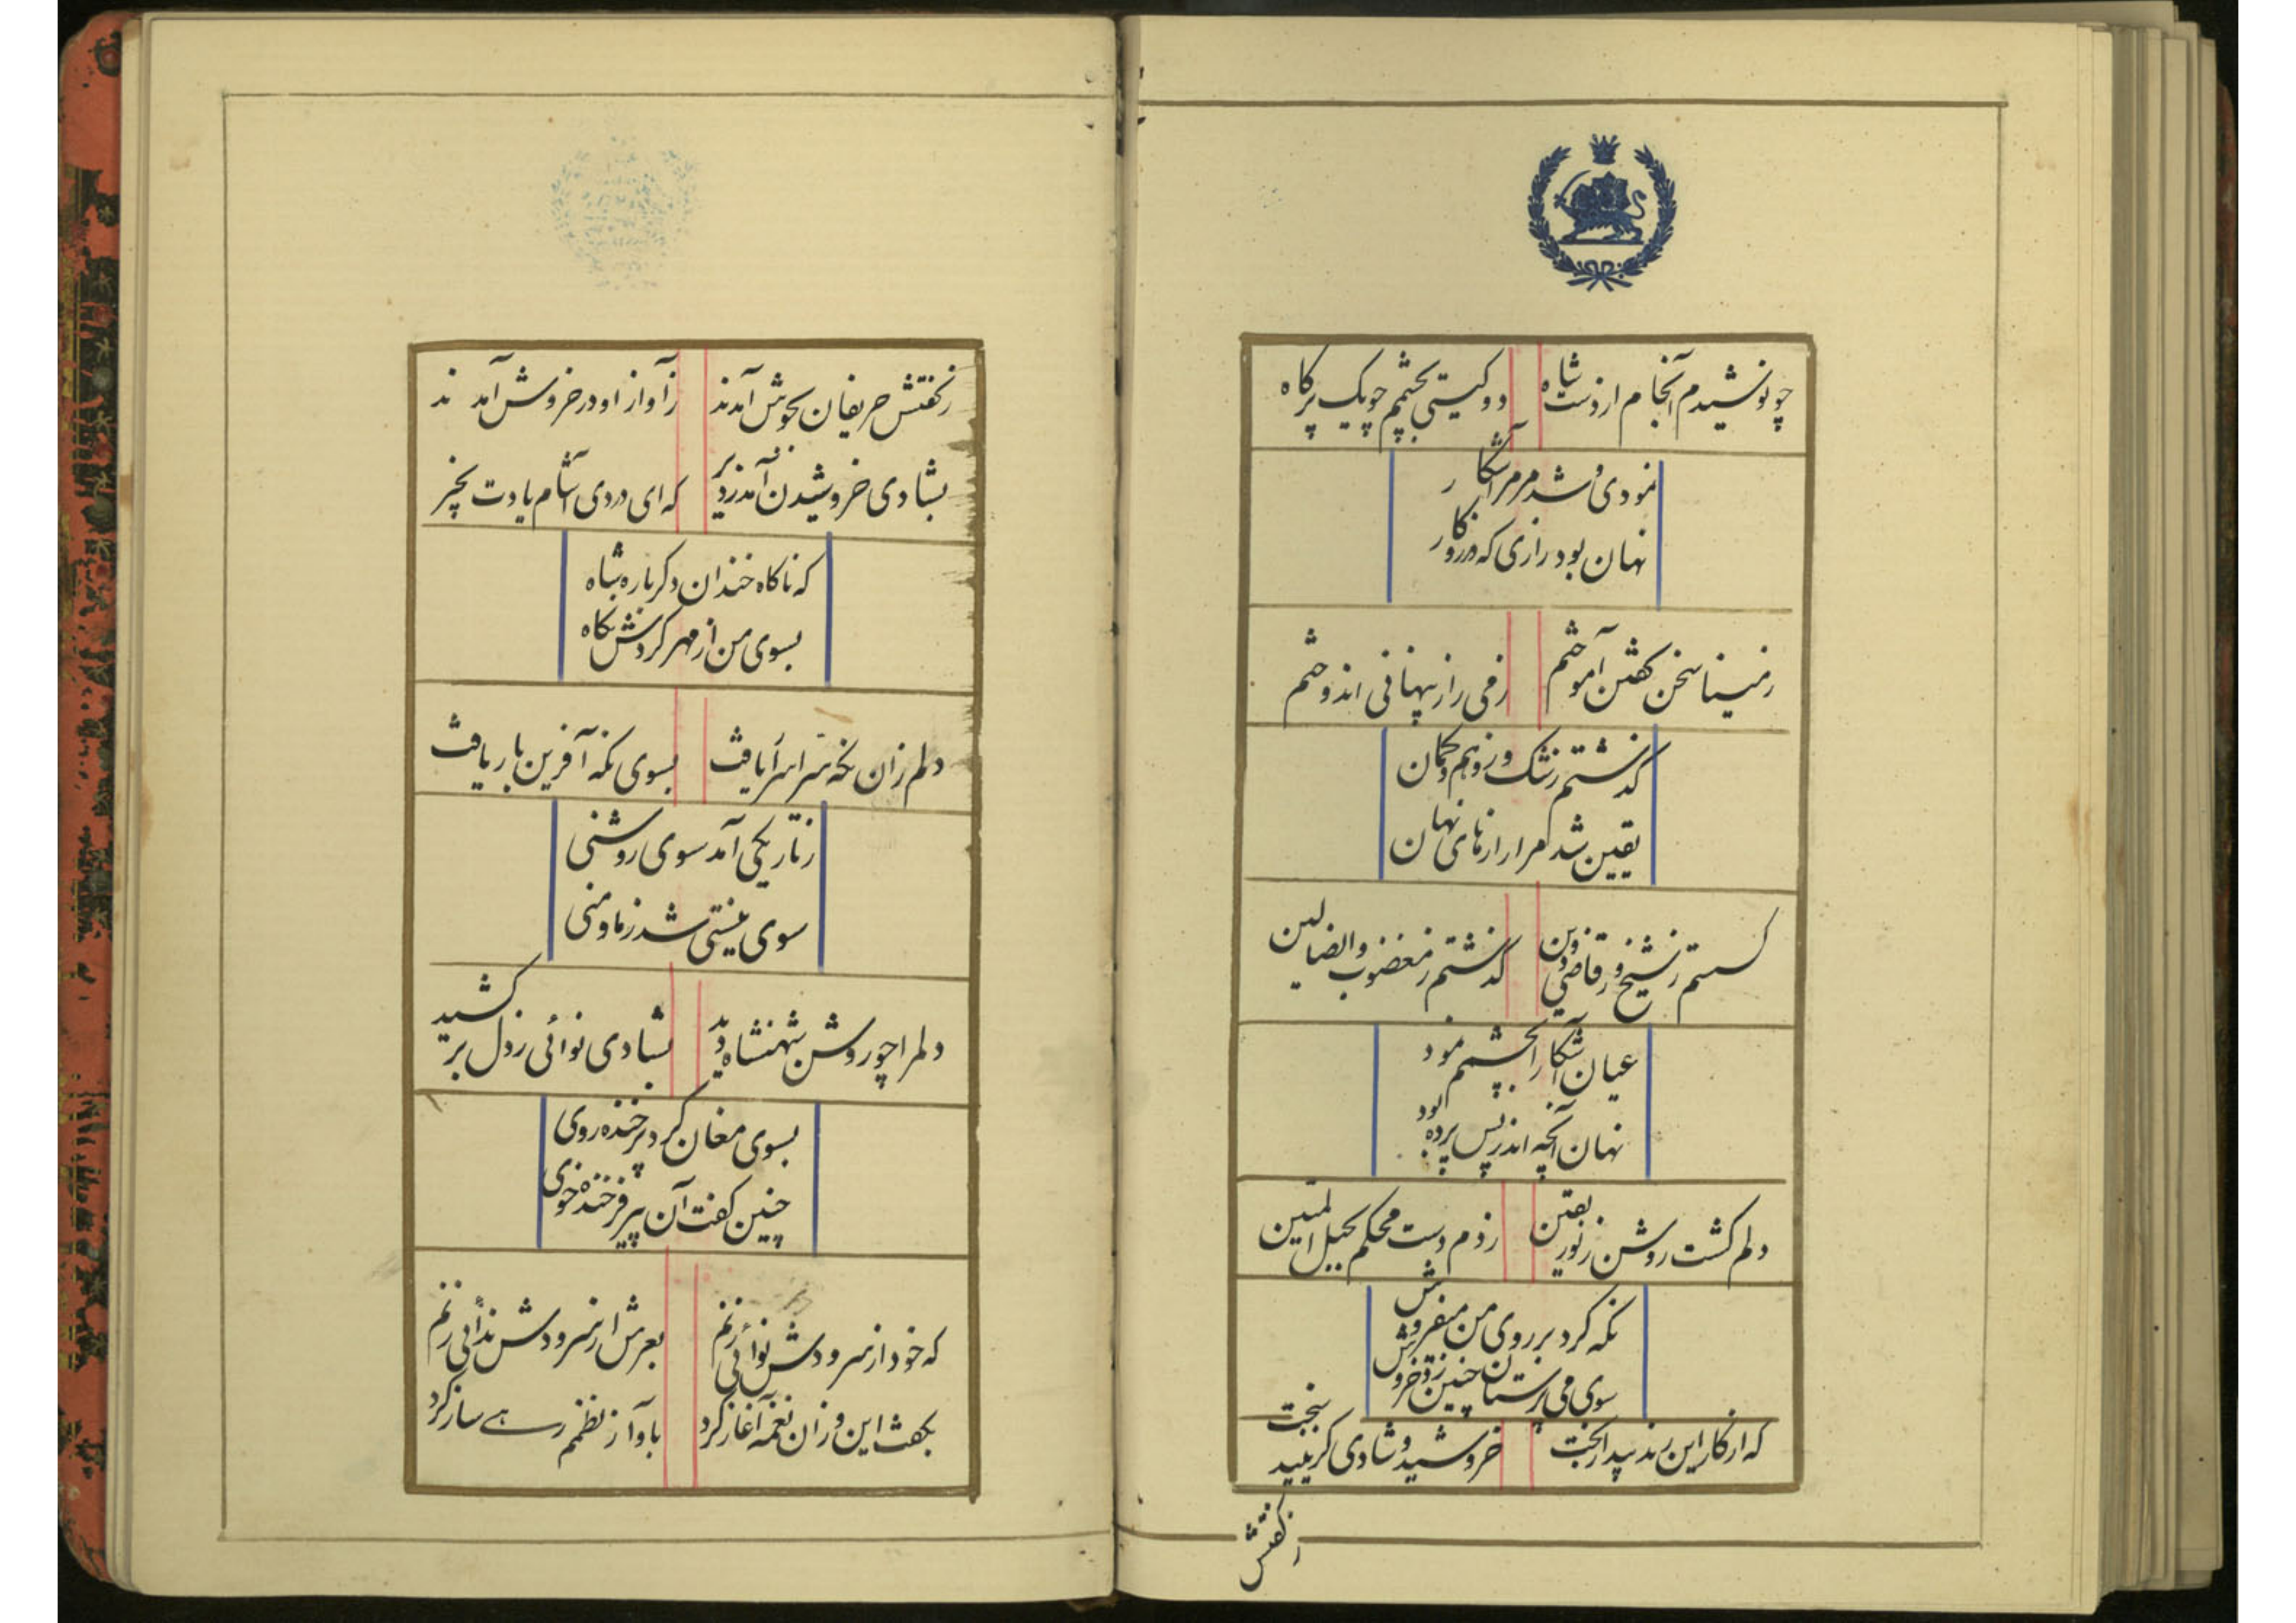 چو نوشیدم آنجام از دست شاه
دو کیتی بچشمم چو یک پر کاه
نمودی و شد مر مرا آشکار
نهان بود رازی که در روزکار
ز مینا سخن کفتن آموختم
ز می راز پنهانی اندوختم
کذشتم ز شک و ز وهم و کمان
یقین شد مرا رازهای نهان
کسستم ز شیخ و ز قاضی دین
کذشتم ز مغضوب والضالین
عیان آشکارا بچشمم نمود
نهان آنچه اندر پس پرده بود
دلم کشت روشن ز نور یقین
زدم دست محکم بحبل المتین
نکه کرد بر روی من میفروش
سوی می پرستان چنین زد خروش
که از کار این رند بیدار بخت
خروشید و شادی کریبید سخت
زکفتش
زکفتش حریفان بجوش آمدند
ز آواز او در خروش آمدند
بشادی خروشیدن آمد ز دیر
که ای دردی آشام یادت بخیر
که ناکاه خندان دکرباره شاه
بسوی من از مهر کردش نکاه
دلم زان نکه سر اسرا یافت
بسوی نکه آفرین بار یافت
ز تاریکی آمد سوی روشنی
سوی نیستی شد ز ما و منی
دلم را چو روشن شهنشاه دید
بشادی نوائی ز دل بر کشید
بسوی مغان کرد پر خنده روی
چنین کفت آن پیر فرخنده خوی
که خود از سرودش نوائی زنم
بعرش از سرودش ندائی زنم
بکفت این و زان نغمه آغاز کرد
باواز نظمم رهی ساز کرد